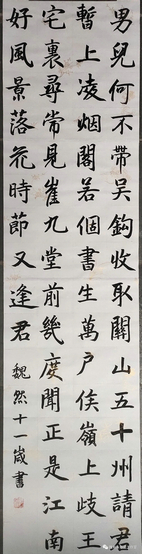 男兒何不帶吳鈎收取關山五十州請君
暫上凌烟閣若個書生萬户侯嶺上歧王
宅裏尋常見崔九堂前幾度聞正是江南
好風景落花時節又逢君
魏然十一歲書